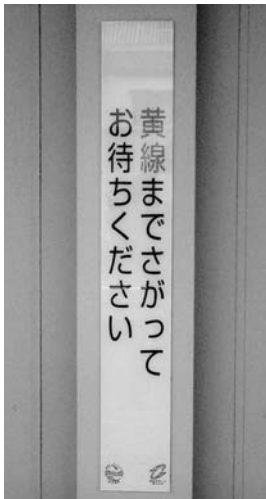 黄線までさがって
お待ちください